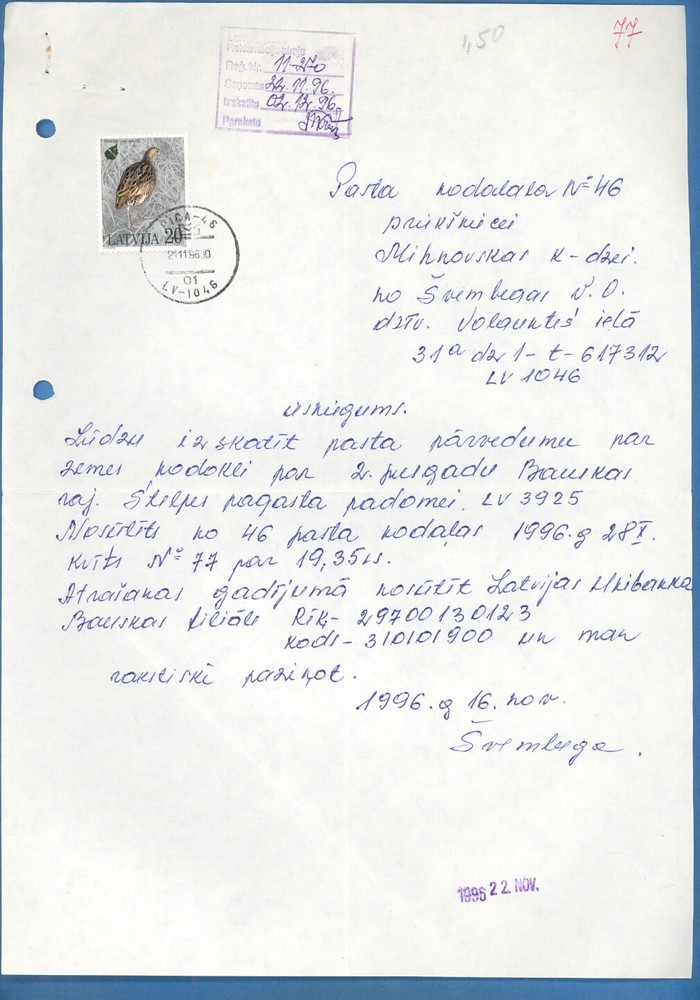 77
1,50
Reklamāciju birojs
Reģ. Nr. 11-270
Saņemts 22.11.96.
Izskatīts 02.12.96.
Paraksts
LATVIJA 20
RIGA-46
211196.10
01
LV-1046
Pasta nodaļas № 46
priekšnicei
Mihnovskas k-dzei.
no Švembergas V. O.
dzīv. Volguntes ielā
31a dz 1- t- 617312
LV 1046
iesniegums.
Lūdzu izskatīt pasta pārvedumu par
zemes nodokli par 2. pusgadu Bauskas
raj. Stelpes pagasta padomei. LV 3925
Nosūtīts no 46 pasta nodaļas 1996.g 28 X.
kvīts № 77 par 19,35 Ls.
Atrašanas gadījumā nosūtīt Latvijas Unibanka
Bauskas filiāle Rēķ- 29700130123
kods- 310101900 un man
rakstiski paziņot.
1996.g 16. nov.
Švemberga.
1996 22. NOV.